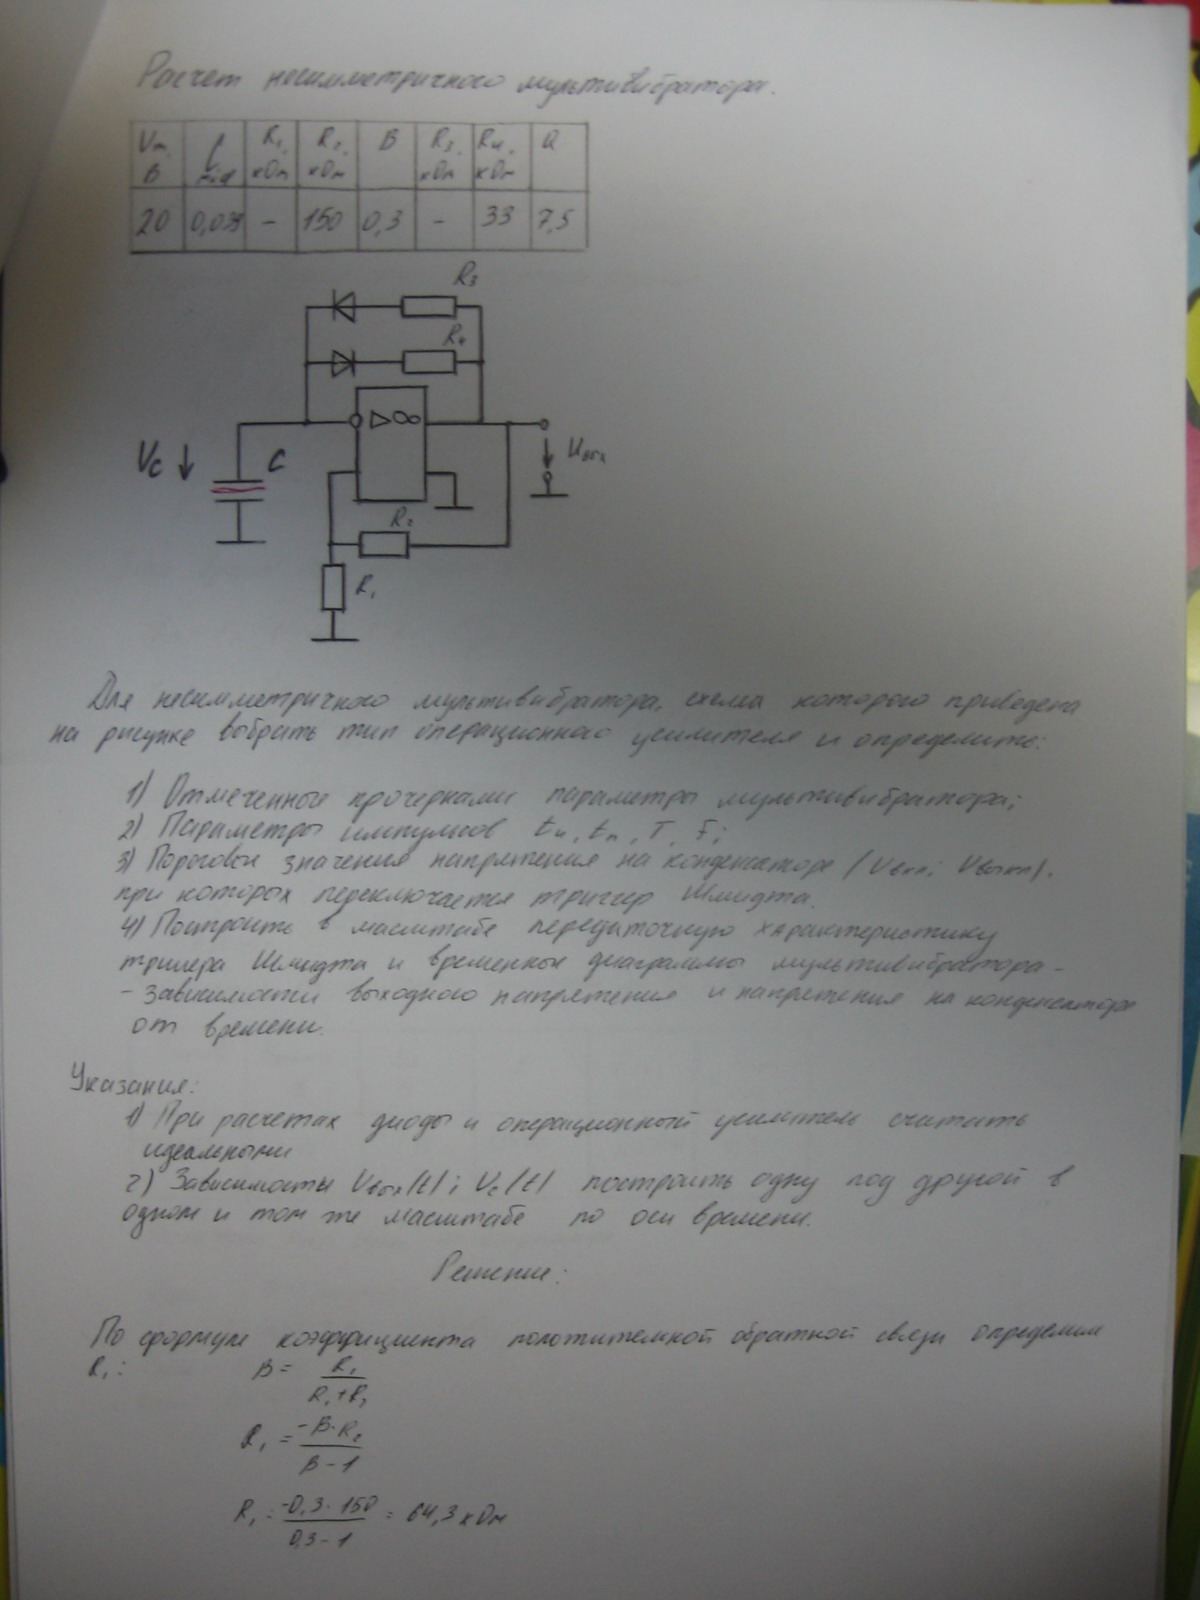 Расчет несимметричного мультивибратора.
Um, В | C, мкФ | R1, кОм | R2, кОм | B | R3, кОм | R4, кОм | Q
20 | 0,039 | - | 150 | 0,3 | - | 33 | 7,5
R3
R4
▷∞
Vc ↓ C
Uвых
R2
R1
Для несимметричного мультивибратора, схема которого приведена
на рисунке выбрать тип операционного усилителя и определить:
1) Отмеченные прочерками параметры мультивибратора;
2) Параметры импульсов tи, tп, T, F;
3) Пороговые значения напряжения на конденсаторе (Vвкл; Vвыкл),
при которых переключается триггер Шмидта.
4) Построить в масштабе передаточную характеристику
триггера Шмидта и временные диаграммы мультивибратора -
- зависимости выходного напряжения и напряжения на конденсаторе
от времени.
Указания:
1) При расчетах диоды и операционный усилитель считать
идеальными
2) Зависимости Vвых(t); Vc(t) построить одну под другой в
одном и том же масштабе по оси времени.
Решение:
По формуле коэффициента положительной обратной связи определим
R1: B = R1 / (R1 + R2)
R1 = -B·R2 / (B - 1)
R1 = -0,3·150 / (0,3 - 1) = 64,3 кОм